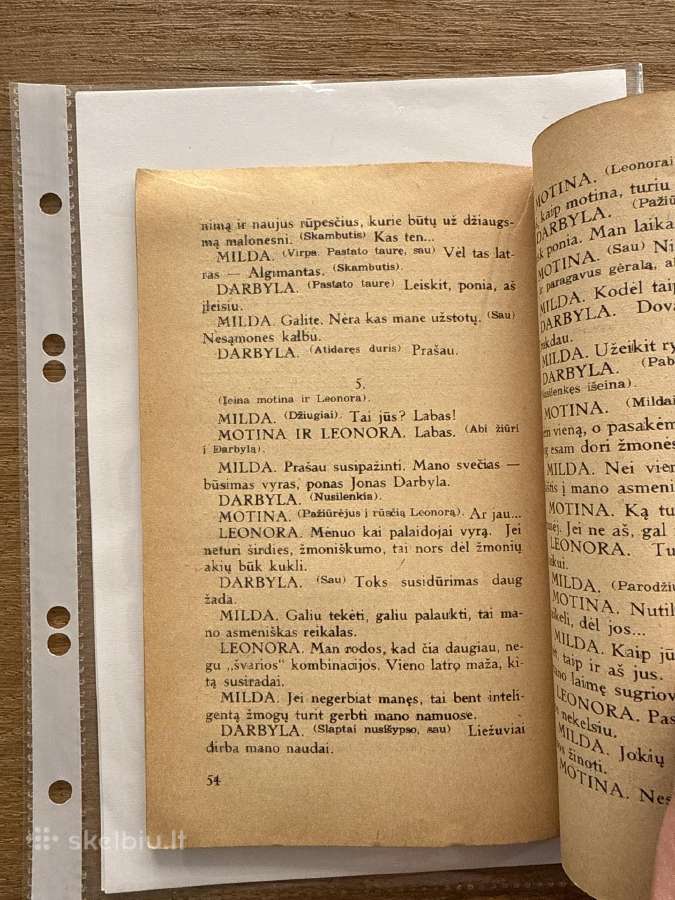 nimą ir naujus rūpesčius, kurie būtų už džiaugs-
mą malonesni. (Skambutis) Kas ten...
MILDA. (Virpa. Pastato taurę, sau) Vėl tas lat-
ras — Algimantas. (Skambutis).
DARBYLA. (Pastato taurę) Leiskit, ponia, aš
įleisiu.
MILDA. Galite. Nėra kas mane užstotų. (Sau)
Nesąmones kalbu.
DARBYLA. (Atidaręs duris) Prašau.
5.
(Įeina motina ir Leonora).
MILDA. (Džiugiai). Tai jūs? Labas!
MOTINA IR LEONORA. Labas. (Abi žiūri
į Darbylą).
MILDA. Prašau susipažinti. Mano svečias —
būsimas vyras, ponas Jonas Darbyla.
DARBYLA. (Nusilenkia).
MOTINA. (Pažiūrėjus į rūsčią Leonorą). Ar jau...
LEONORA. Mėnuo kai palaidojai vyrą. Jei
neturi širdies, žmoniškumo, tai nors dėl žmonių
akių būk kukli.
DARBYLA. (Sau) Toks susidūrimas daug
žada.
MILDA. Galiu tekėti, galiu palaukti, tai ma-
no asmeniškas reikalas.
LEONORA. Man rodos, kad čia daugiau, ne-
gu „švarios“ kombinacijos. Vieno latro maža, ki-
tą susiradai.
MILDA. Jei negerbiat manęs, tai bent inteli-
gentą žmogų turit gerbti mano namuose.
DARBYLA. (Slaptai nusišypso, sau) Liežuviai
dirba mano naudai.
54
MOTINA. (Leonorai
kaip motina, turiu
DARBYLA. (Pažiū
ponia. Man laika
MOTINA. (Sau) Ni
ir paragavus gėralą, a
MILDA. Kodėl taip
DARBYLA. Dova
MILDA. Užeikit ry
DARBYLA. (Pab
nusilenkęs išeina).
MOTINA. (Mildai
vieną, o pasakėm
esam dori žmonės
MILDA. Nei vien
į mano asmeni
MOTINA. Ką tu
Jei ne aš, gal
LEONORA. Tu
MILDA. (Parodžiu
MOTINA. Nutil
dėl jos...
MILDA. Kaip jū
taip ir aš jus.
laimę sugriov
LEONORA. Pas
nekelsiu.
MILDA. Jokių
žinoti.
MOTINA. Nes
skelbiu.lt